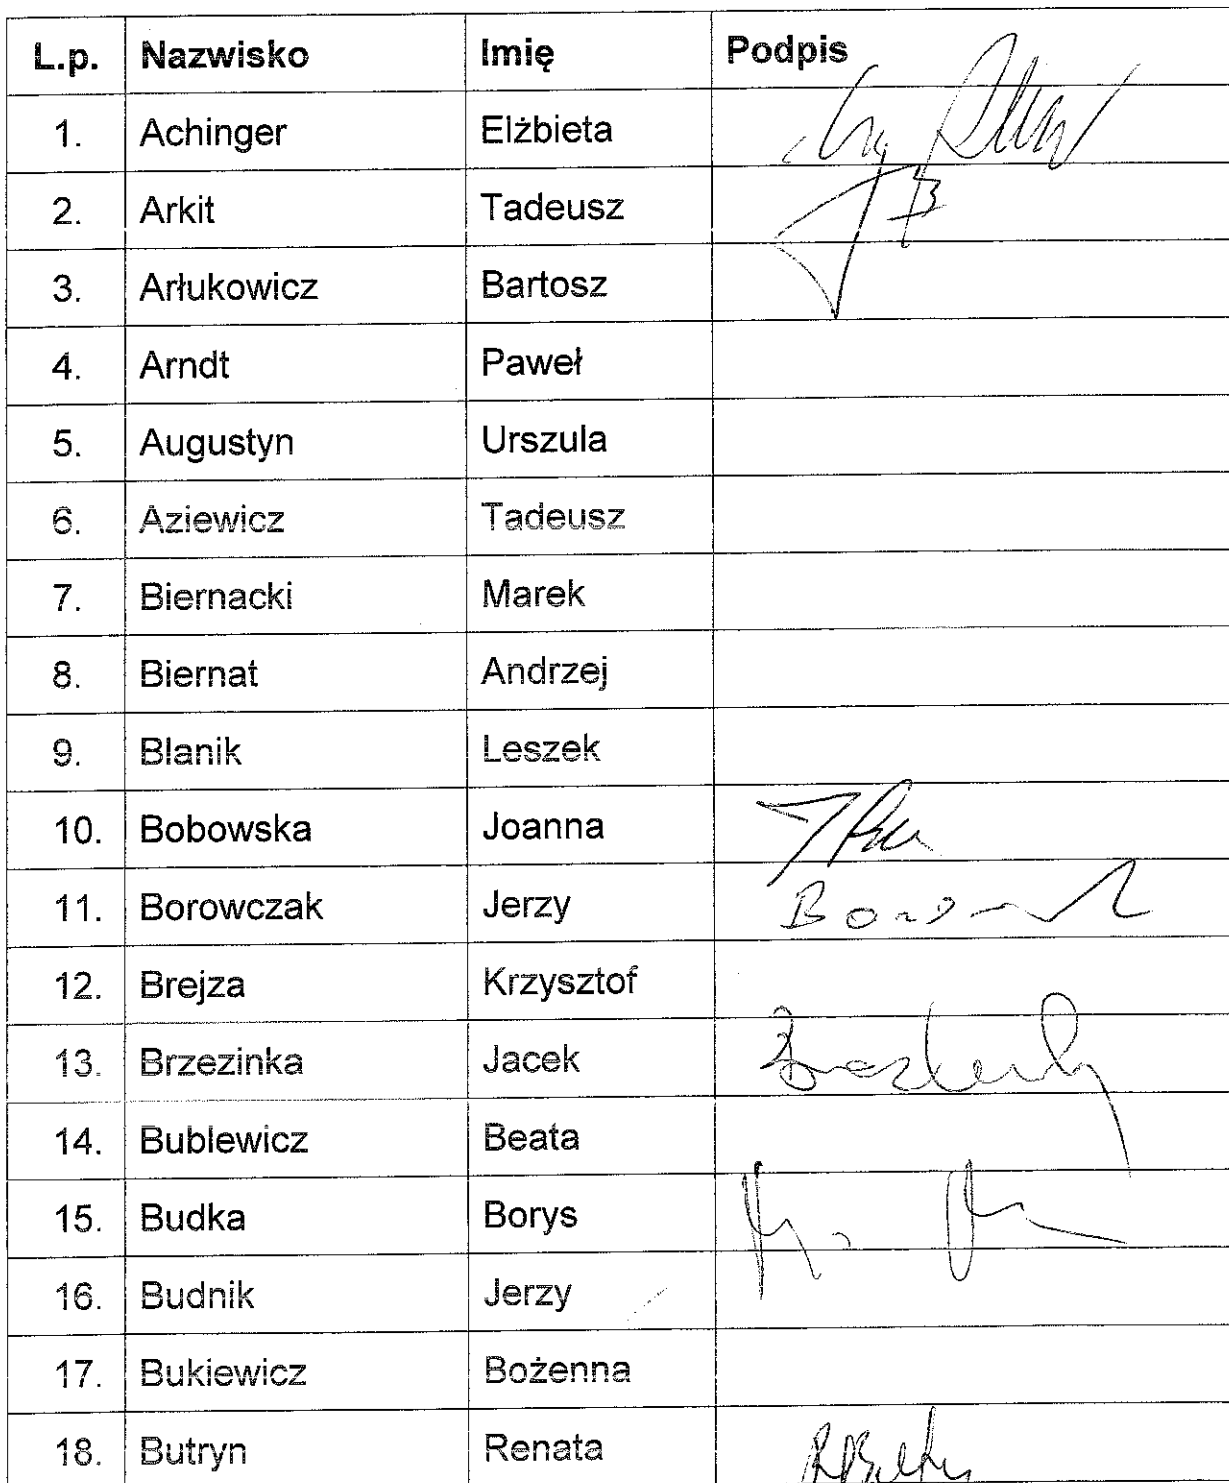 L.p. Nazwisko Imię Podpis
1. Achinger Elżbieta
2. Arkit Tadeusz
3. Arłukowicz Bartosz
4. Arndt Paweł
5. Augustyn Urszula
6. Aziewicz Tadeusz
7. Biernacki Marek
8. Biernat Andrzej
9. Blanik Leszek
10. Bobowska Joanna
11. Borowczak Jerzy
12. Brejza Krzysztof
13. Brzezinka Jacek
14. Bublewicz Beata
15. Budka Borys
16. Budnik Jerzy
17. Bukiewicz Bożenna
18. Butryn Renata